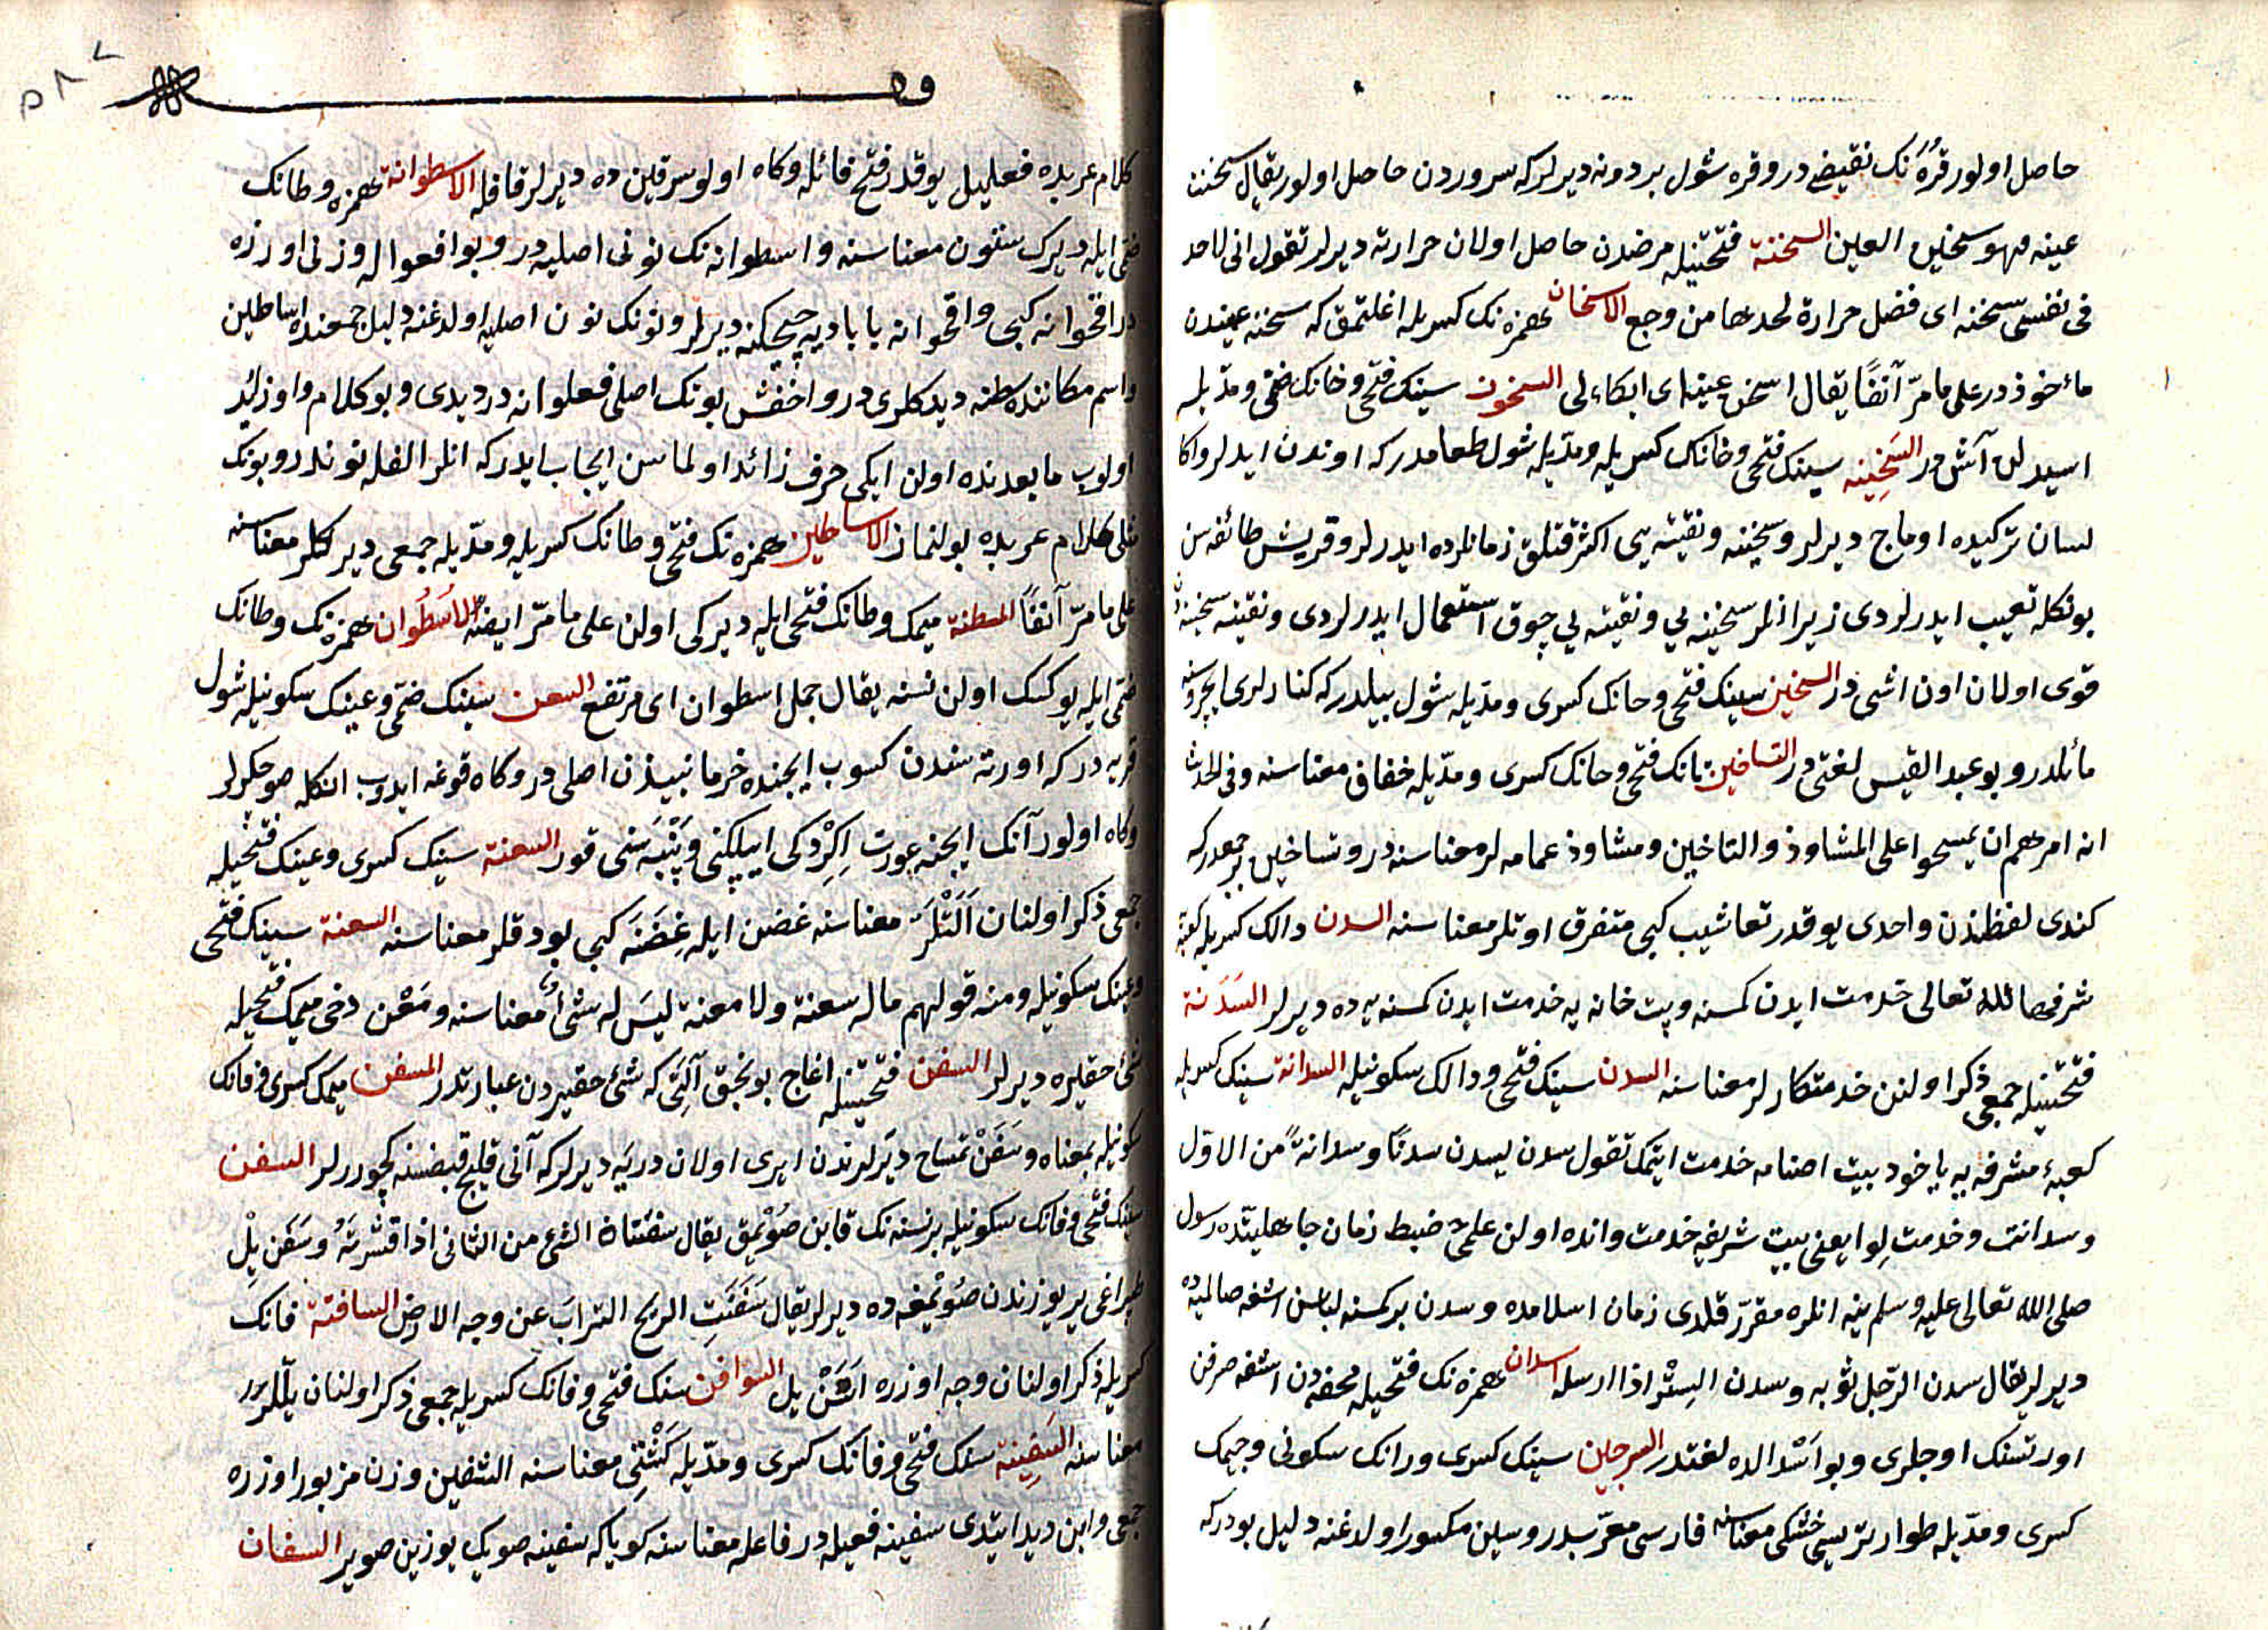 حاصل اولور قرّه نك نقيضى در و قره شول بردونه ديرلر كه سروردن حاصل اولور يقال سخنت
عينه فهو سخين العين السخنة فتحتينله مرضدن حاصل اولان حرارته ديرلر تقول انى لاجد
فى نفسى سخنه اى فضل حرارة تجدها من وجع الاسخان همزه نك كسريله اغلتمق كه سخنه عيندن
مأخوذدر على مامرّ آنفًا يقال اسخن عينه اى ابكاه لى السخون سينك فتحى و خانك ضمّى و مدّيله
اسيدلن آش در السَخِينه سينك فتحى و خانك كسريله و مدّيله شول طعامدر كه اوندن ايدرلر و اكا
لسان تركيده اوماج ديرلر و سخينه و نفيته يى اكثر قتلق زمانلرده ايدرلر و قريش طائفه سن
بونكله تعييب ايدرلردى زيرا انلر سخينه يى و نفيته يى چوق استعمال ايدرلردى و نفيته سخينه دن
قوى اولان اون اشى در السخين سينك فتحى و خانك كسرى و مدّيله شول بيلدر كه كنارلرى ايچروسنه
مائلدر و بو عبد القيس لغتى در التساخين تانك فتحى و خانك كسرى و مدّيله خفاف معناسنه و فى الحديث
انه امرهم ان يمسحوا على المشاوذ و التساخين و مشاوذ عمامه لر معناسنه در و تساخين بر جمعدر كه
كندى لفظندن واحدى يوقدر تعاشيب كبى متفرق اوتلر معناسنه السدن دالك كسريله كعبه
شرفها الله تعالى خدمت ايدن كمسنه و بت خانه يه خدمت ايدن كمسنه يه ده ديرلر السَدَنة
فتحتينله جمعى ذكر اولنن خدمتكارلر معناسنه السدن سينك فتحى و دالك سكونيله السدانة سينك كسريله
كعبۀ مشرفه يه ياخود بيت اصنامه خدمت ايتمك تقول سدن يسدن سدنًا و سدانةً من الاوّل
و سدانت و خدمت لوا يعنى بيت شريفه خدمت و انده اولن علمى ضبط زمان جاهليتده رسول
صلى الله تعالى عليه و سلم ينه انلره مقرّر قلدى زمان اسلامده و سدن بر كمسنه لباسن اشغه صالميه ده
ديرلر يقال سدن الرّجل ثوبه و سدن السِتْرَ اذا ارسله اسدان همزه نك فتحيله محفه دن اشغه صرقن
اورتسنك اوجلرى و بو اسْدالده لغتدر السرجين سينك كسرى و رانك سكونى و جيمك
كسرى و مدّيله طوار ترسى خشكى معناسنه فارسى معرّبيدر و سين مكسور اولدغنه دليل بودر كه
كلام عربده فعليل يوقدر فتح فائله و كاه اولو سرقين ده ديرلر قافله الاسطوانة همزه و طانك
ضمّى ايله ديرك ستون معناسنه و اسطوانه نك نونى اصليه در و بو افعواله وزنى اوزره
در اقحوانه كبى و اقحوانه يا باديه چيچكنه ديرلر و نونك نون اصليه اولدغنه دليل جمعنده اساطين
و اسم مكاننده مسطنه ديدكلرى در و اخفش بونك اصلى فعلوانه در ديدى و بو كلام واو زائد
اولوب مابعدنده اولن ايكى حرف زائد اولماسن ايجاب ايدر كه انلر الفله نوندر و بونك
مثلى كلام عربده بولنماز الاساطين همزه نك فتحى و طانك كسريله و مدّيله جمعى ديركلر معناسنه
على مامرّ آنفًا المسطنة ميمك و طانك فتحى ايله ديركى اولن على مامرّ ايضًا الاُسْطُوان همزه نك و طانك
ضمّى ايله يوكسك اولن نسنه يقال جمل اسطوان اى مرتفع السعن سينك ضمّى و عينك سكونيله شول
قربه در كه اورته سندن كسوب ايچنده خرما نبيذن اصلى در و كاه قوغه ايدوب انكله صو چكرلر
و كاه اولور آنك ايچنه عورت اِكِرْدكى ايپلكنى و پَنْبَه سنى قور السعنة سينك كسرى و عينك فتحيله
جمعى ذكر اولنان اَلَتْلَر معناسنه غضن ايله غِضَنَه كبى بودقلر معناسنه السعنة سينك فتحى
و عينك سكونيله و منه قولهم ماله سعنة و لا معنة ليسَ له شئ معناسنه و مَعْن دخى ميمك فتحيله
شئ حقيره ديرلر السفن فتحتينله اغاج يونجق آلتى كه شئ حقيردن عبارتدر المسفن ميمك كسرى و فانك
سكونيله بمعناه و سَفَنْ تمساح ديرلرندن ايرى اولان دريه ديرلر كه آنى قليج قبضسنه كچوررلر السفن
سينك فتحى و فانك سكونيله بر نسنه نك قابن صُوْيمق يقال سفنتاه الشئ من الثانى اذا قشرته و سَفَن يِلْ
طپراغى ير يوزندن صُويمغه ده ديرلر يقال سَفَنَتِ الريح الترابَ عن وجه الارض السافنة فانك
كسريله ذكر اولنان وجه اوزره اَسَنْ يل السوافن سنك فتحى و فانك كسريله جمعى ذكر اولنان يللر
معناسنه السَفِينة سنك فتحى و فانك كسرى و مدّيله كَشْتِى معناسنه السفين وزن مزبور اوزره
جمعى و ابن دريد ايتدى سفينه فعيله در فاعله معناسنه كويا كه سفينه صويك يوزين صوير السفان